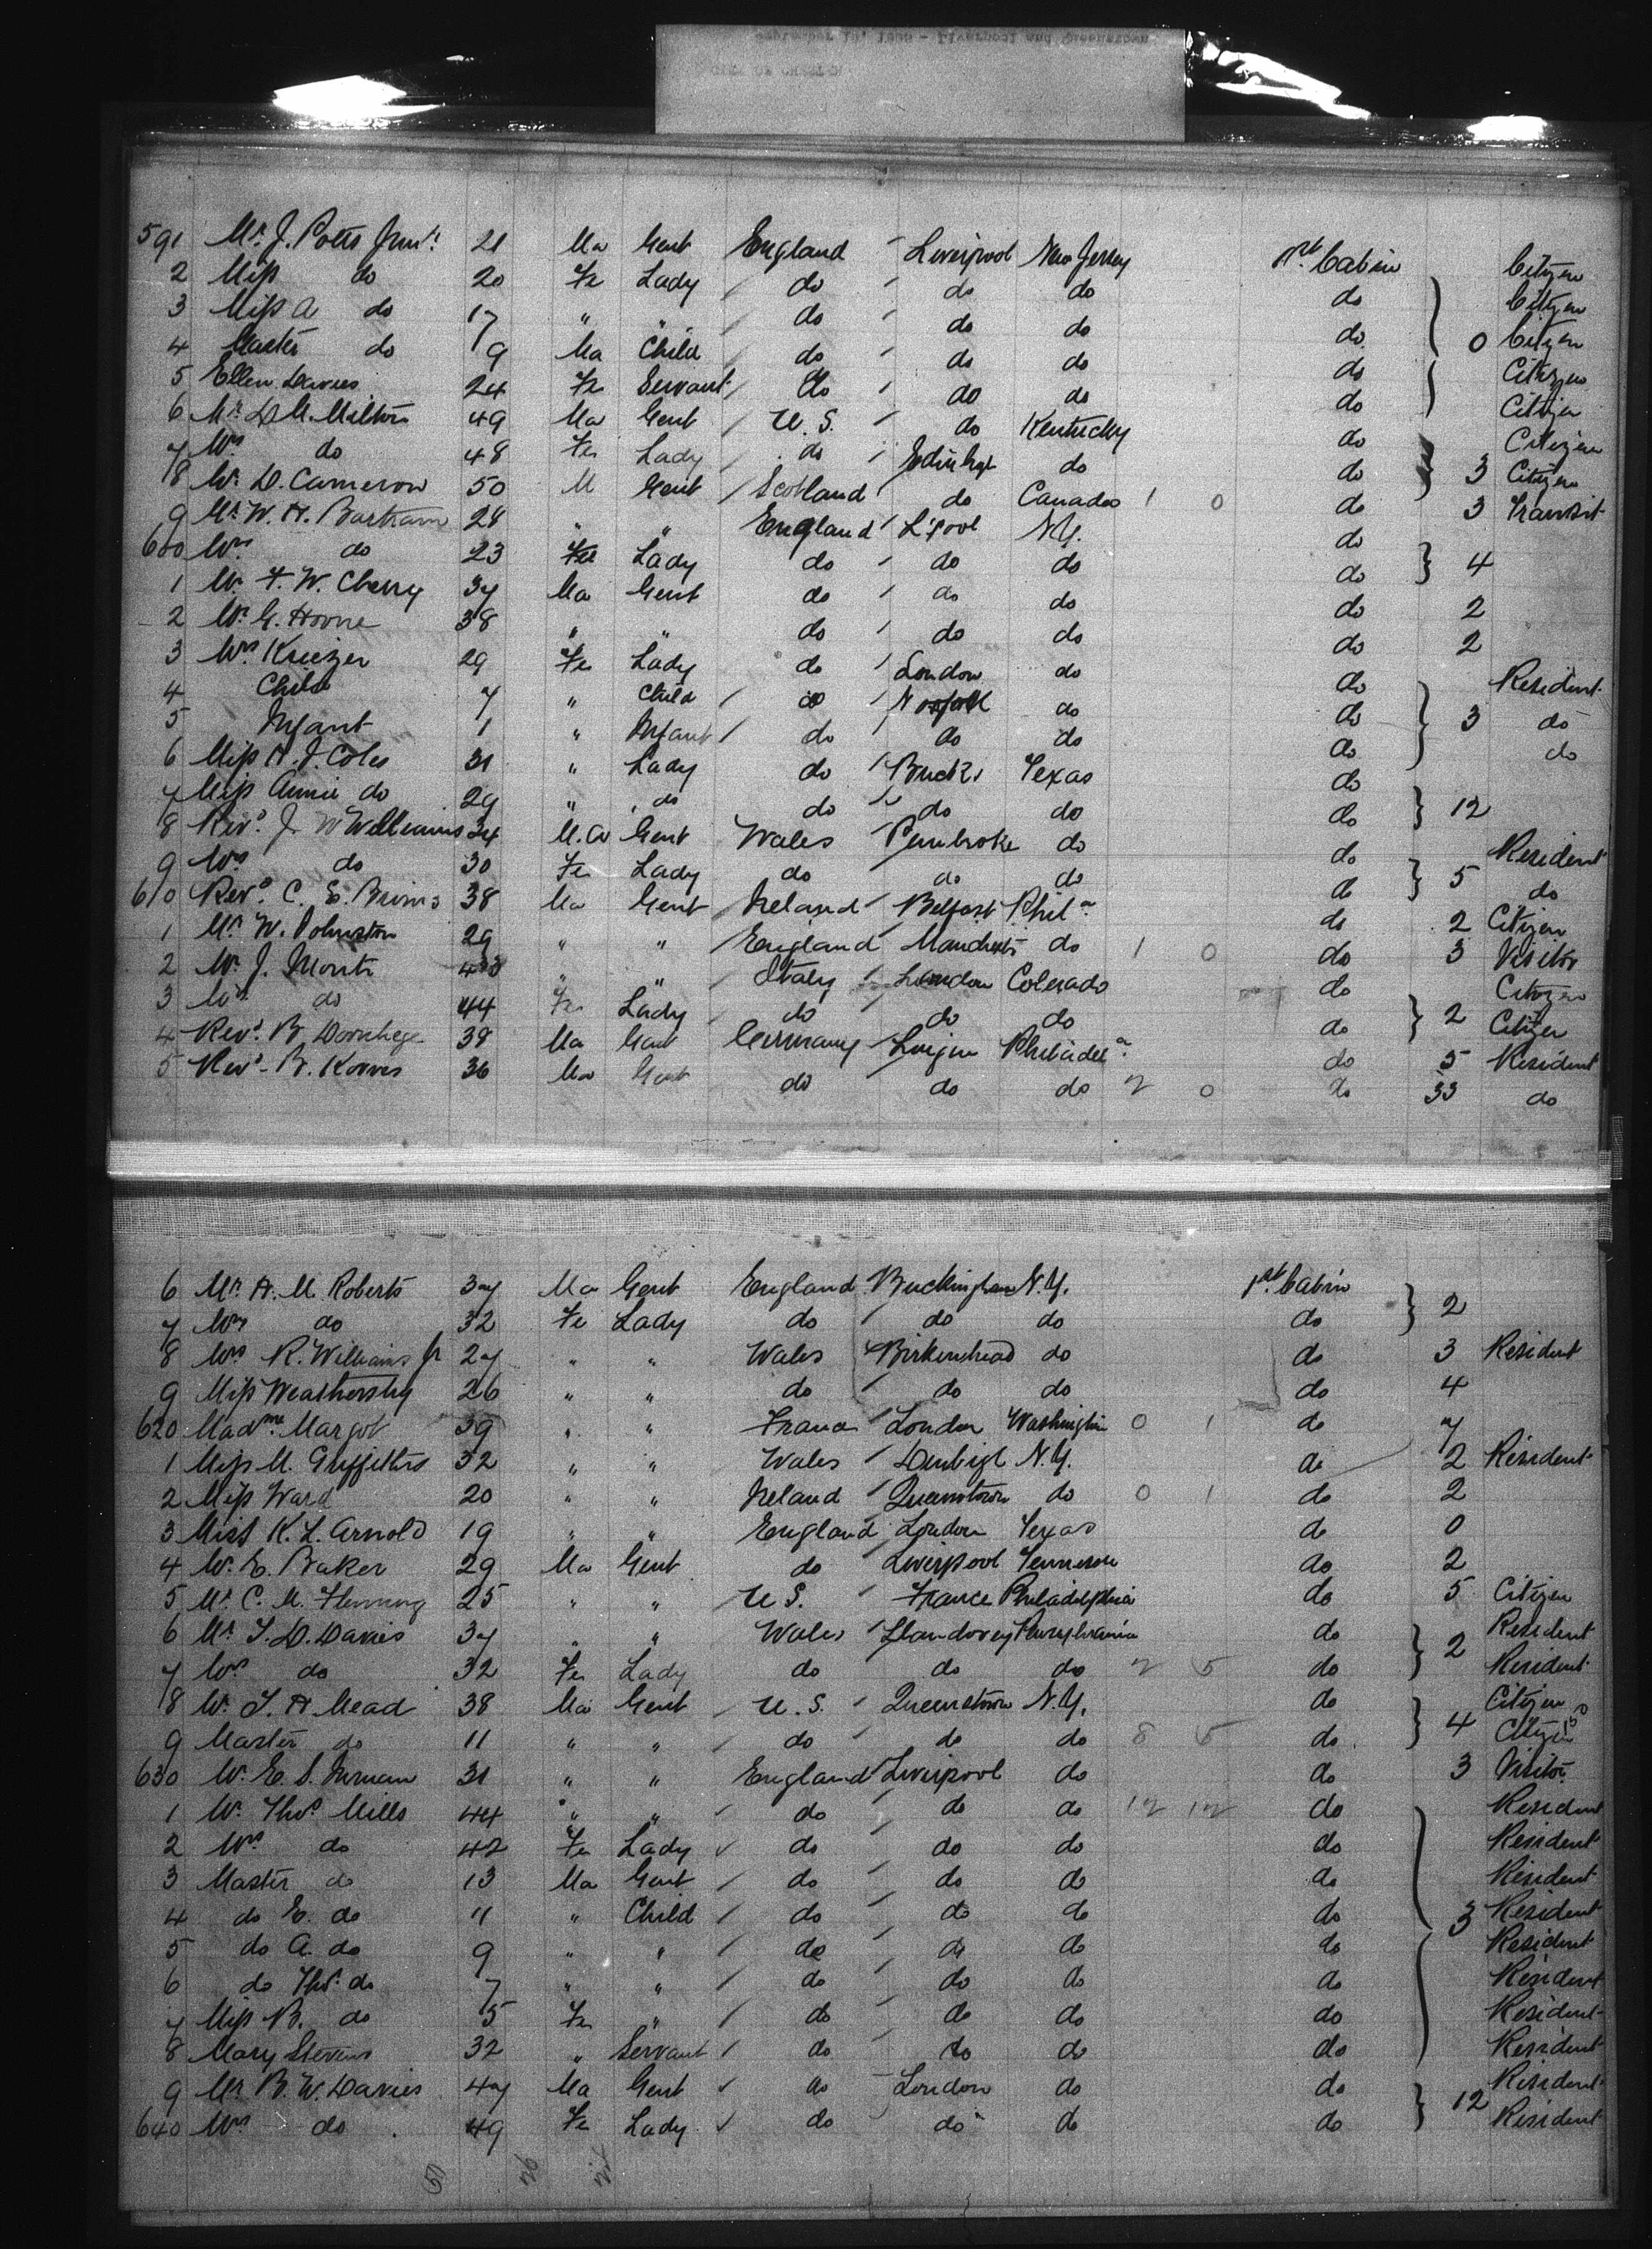 591 Mr. J. Potts Junr. 21 Ma Gent England Liverpool New Jersey 1st Cabin Citizen
2 Miss do 20 Fe Lady do do do do Citizen
3 Miss A do 17 " " do do do do 0 Citizen
4 Master do 9 Ma Child do do do do Citizen
5 Ellen Davies 24 Fe Servant do do do do Citizen
6 Mr. D. M. Milton 49 Ma Gent U.S. do Kentucky do Citizen
7 Mrs do 48 Fe Lady do Edinbgh do do 3 Citizen
8 Mr. D. Cameron 50 M Gent Scotland do Canada 1 0 do 3 Transit
9 Mr. W. H. Bartram 28 " " England L'pool N.Y. do
600 Mrs do 23 Fe Lady do do do do 4
1 Mr. F. W. Cherry 37 Ma Gent do do do do 2
2 Mr. G. Horne 38 " " do do do do 2
3 Mrs. Kriezer 29 Fe Lady do London do do Resident
4 Child 7 " Child do Norfolk do do 3 do
5 Infant 1 " Infant do do do do do
6 Miss H. J. Coles 31 " Lady do Bucks Texas do
7 Miss Annie do 29 " do do do do do 12
8 Revd. J. W Williams 34 Ma Gent Wales Pembroke do do Resident
9 Mrs do 30 Fe Lady do do do do 5 do
610 Revd. C. E. 38 Ma Gent Ireland Belfast Phila. do 2 Citizen
1 Mr. W. Johnston 29 " " England Manchestr do 1 0 do 3 Visitor
2 Mr. J. 43 " " Italy London Colorado do Citizen
3 Mrs. do 44 Fe Lady do do do do 2 Citizen
4 Revd. B. 38 Ma Gent Germany Philadela. do 5 Resident
5 Revd. B. 36 Ma Gent do do do 2 0 do 33 do
6 Mr. H. M. Roberts 37 Ma Gent England Buckingham N.Y. 1st. Cabin
7 Mrs do 32 Fe Lady do do do do 2
8 Mrs R. Williams Jr 27 " " Wales Birkenhead do do 3 Resident
9 Miss Weathersby 26 " " do do do do 4
620 Madme. Margot 39 " " France London Washington 0 1 do 7
1 Miss M. Griffiths 32 " " Wales Denbigh N.Y. do 2 Resident
2 Miss Ward 20 " " Ireland Queenstown do 0 1 do 2
3 Miss K. L. Arnold 19 " " England London Texas do 0
4 Mr. E. Baker 29 Ma Gent do Liverpool Tennessee do 2
5 Mr. C. M. Fleming 25 " " U S. France Philadelphia do 5 Citizen
6 Mr. T. D. Davies 37 " " Wales Llandovey Pennsylvania do Resident
7 Mrs do 32 Fe Lady do do do 2 5 do 2 Resident
8 Mr. T. H Mead 38 Ma Gent U.S. Queenstown N.Y. do Citizen
9 Master do 11 " " do do do 8 5 do 4 Citizen
630 Mr. E. S. 31 " " England Liverpool do do 3 Visitor
1 Mr. Thos. Mills 44 " " do do do 12 12 do Resident
2 Mrs do 42 Fe Lady do do do do Resident
3 Master do 13 Ma Gent do do do do Resident
4 do E. do 11 " Child do do do do 3 Resident
5 do A. do 9 " " do do do do Resident
6 do Thos. do 7 " " do do do do Resident
7 Miss B. do 5 Fe " do do do do Resident
8 Mary Stevens 32 " Servant do do do do Resident
9 Mr. B. W. Davies 47 Ma Gent do London do do Resident
640 Mrs do 49 Fe Lady do do do do 12 Resident